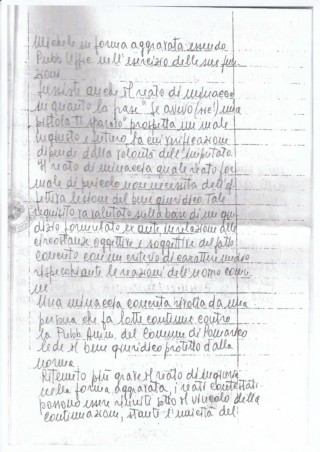 Michele in forma aggravata essendo
Pubb. Uff.le nell'esercizio delle sue fun
zioni.
Sussiste anche il reato di minaccia
in quanto la frase "se avevo (ne') una
pistola ti sparavo" prospetta un male
ingiusto e futuro la cui verificazione
dipende dalla volontà dell'imputato.
Il reato di minaccia quale reato for
male di pericolo non necessita dell'ef
fettiva lesione del bene giuridico. Tale
requisito va valutato sulla base di un giu
dizio formulato ex ante in relazione alle
circostanze oggettive e soggettive del fatto
concreto con un criterio di carattere medio
rispecchiante le reazioni dell'uomo comu
ne.
Una minaccia concreta rivolta da una
persona che fa lotte continue contro
la Pubb. Amm. del Comune di Pomarico
lede il bene giuridico protetto dalla
norma.
Ritenuto più grave il reato di
nella forma aggravata, i reati contestati
possono essere riuniti sotto il vincolo della
continuazione, stante l'unicità del